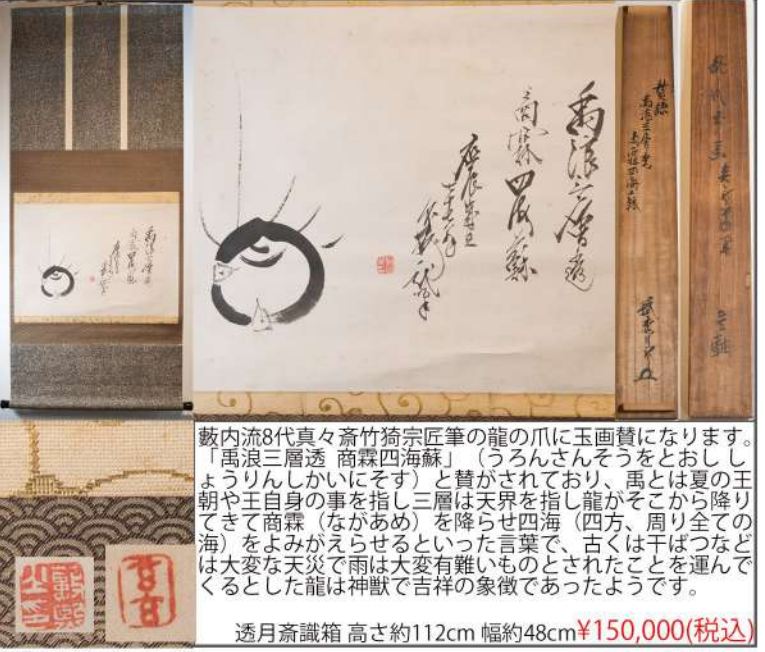 禹浪三層透
商霖四海蘇
庚辰
藪内流8代真々斎竹猗宗匠筆の龍の爪に玉画賛になります。
「禹浪三層透 商霖四海蘇」（うろんさんそうをとおし し
ょうりんしかいにそす）と賛がされており、禹とは夏の王
朝や王自身の事を指し三層は天界を指し龍がそこから降り
てきて商霖（ながあめ）を降らせ四海（四方、周り全ての
海）をよみがえらせるといった言葉で、古くは干ばつなど
は大変な天災で雨は大変有難いものとされたことを運んで
くるとした龍は神獣で吉祥の象徴であったようです。
透月斎識箱 高さ約112cm 幅約48cm¥150,000(税込)